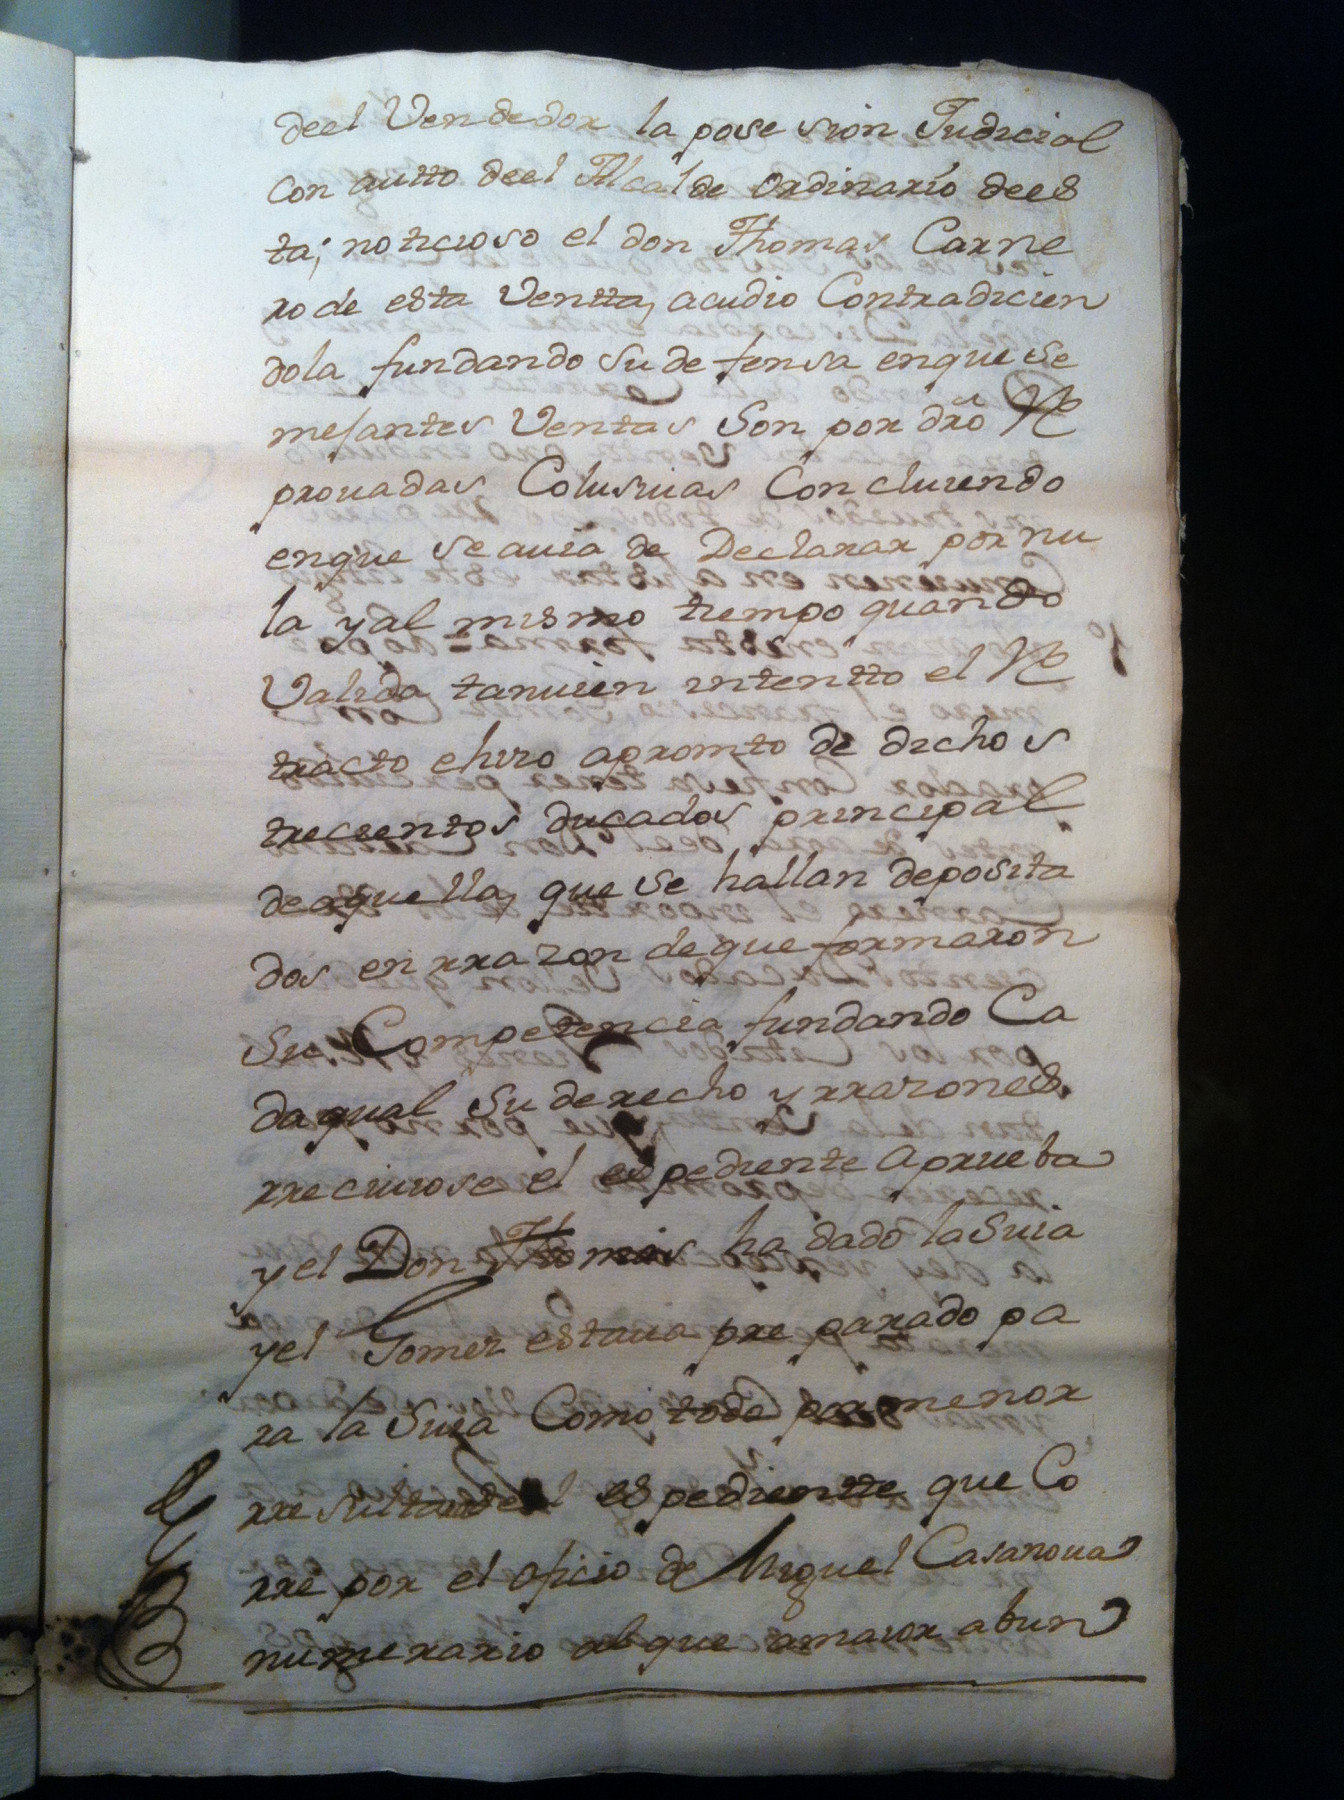 deel Vendedor la posesion Judicial
Con autto deel Alcalde ordinario dees
ta; noticioso el don Thomas Carne
ro de esta Ventta, acudio Contradicien
dola fundando su defensa enque se
mejantes Ventas Son por dro Re
prouadas Colusiuas Concluiendo
enque se auia de Declarar por nu
la yal mismo tiempo quando
Valida tanuien intentto el Re
tracto ehizo apromto de dichos
trecientos ducados principal
deaquella, que se hallan deposita
dos en rrazon deque formaron
Su Competencia fundando Ca
daqual su derecho y rrazones.
rreciuiose el espediente aprueba
y el Don Thomas ha dado la Suia
yel Gomez estaua pre parado pa
ra la Suia Como todo por menor
rresulta deel espedientte que Co
rre por el oficio de Miguel Casanoua
numerario al que amaior abun